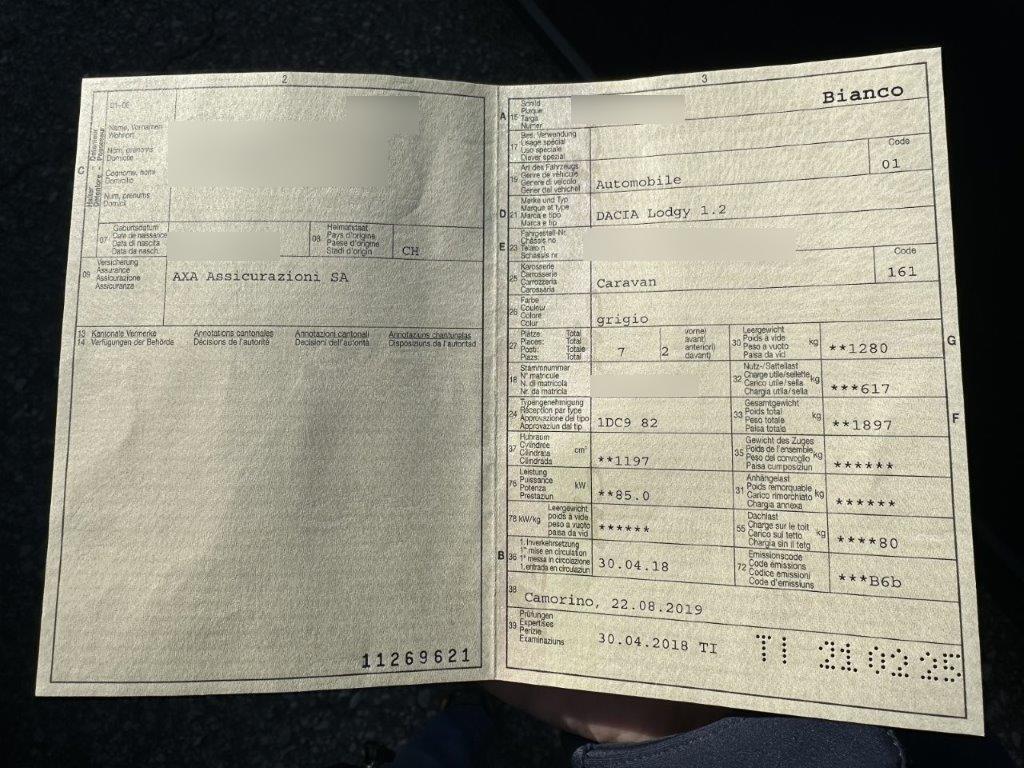 2
01-06
Name, Vornamen
Wohnort
Nom, prénoms
Domicile
Cognome, nomi
Domicilio
Num, prenums
Domicil
C
Halter
Détenteur - Detentore
07
Geburtsdatum
Date de naissance
Data di nascita
Data da nasch.
08
Heimatstaat
Pays d'origine
Paese d'origine
Stadi d'origin
CH
09
Versicherung
Assurance
Assicurazione
Assicuranza
AXA Assicurazioni SA
13 Kantonale Vermerke Annotations cantonales Annotazioni cantonali Annotaziuns chantunalas
14 Verfügungen der Behörde Décisions de l'autorité Decisioni dell'autorità Disposiziuns da l'autoritad
11269621
3
Bianco
A 15
Schild
Plaque
Targa
Numer
17
Bes. Verwendung
Usage spécial
Uso speciale
Diever spezial
Code
19
Art des Fahrzeugs
Genre de véhicule
Genere di veicolo
Gener dal vehichel
Automobile
01
D 21
Marke und Typ
Marque et type
Marca e tipo
Marca e tip
DACIA Lodgy 1.2
E 23
Fahrgestell-Nr.
Châssis no
Telaio n.
Schassis nr.
25
Karosserie
Carrosserie
Carrozzeria
Carossaria
Caravan
Code
161
26
Farbe
Couleur
Colore
Colur
grigio
27
Plätze: Total
Places: Total
Posti: Totale
Plazs: Total
7
2
vorne)
avant)
anteriori)
davant)
30
Leergewicht
Poids à vide
Peso a vuoto
Paisa da vid
kg
**1280
G
18
Stammnummer
N° matricule
N. di matricola
Nr. da matricla
32
Nutz-/Sattellast
Charge utile/sellette
Carico utile/sella
Chargia utila/sella
kg
***617
24
Typengenehmigung
Réception par type
Approvazione del tipo
Approvaziun dal tip
1DC9 82
33
Gesamtgewicht
Poids total
Peso totale
Paisa totala
kg
**1897
F
37
Hubraum
Cylindrée
Cilindrata
Cilindrada
cm³
**1197
35
Gewicht des Zuges
Poids de l'ensemble
Peso del convoglio
Paisa cumposiziun
kg
******
76
Leistung
Puissance
Potenza
Prestaziun
kW
**85.0
31
Anhängelast
Poids remorquable
Carico rimorchiato
Chargia annexa
kg
******
78 kW/kg
Leergewicht
poids à vide
peso a vuoto
paisa da vid
******
55
Dachlast
Charge sur le toit
Carico sul tetto
Chargia sin il tetg
kg
****80
B 36
1. Inverkehrsetzung
1re mise en circulation
1a messa in circolazione
1. entrada en circulaziun
30.04.18
72
Emissionscode
Code émissions
Codice emissioni
Code d'emissiuns
***B6b
38
Camorino, 22.08.2019
39
Prüfungen
Expertises
Perizie
Examinaziuns
30.04.2018 TI
TI 21 02 25